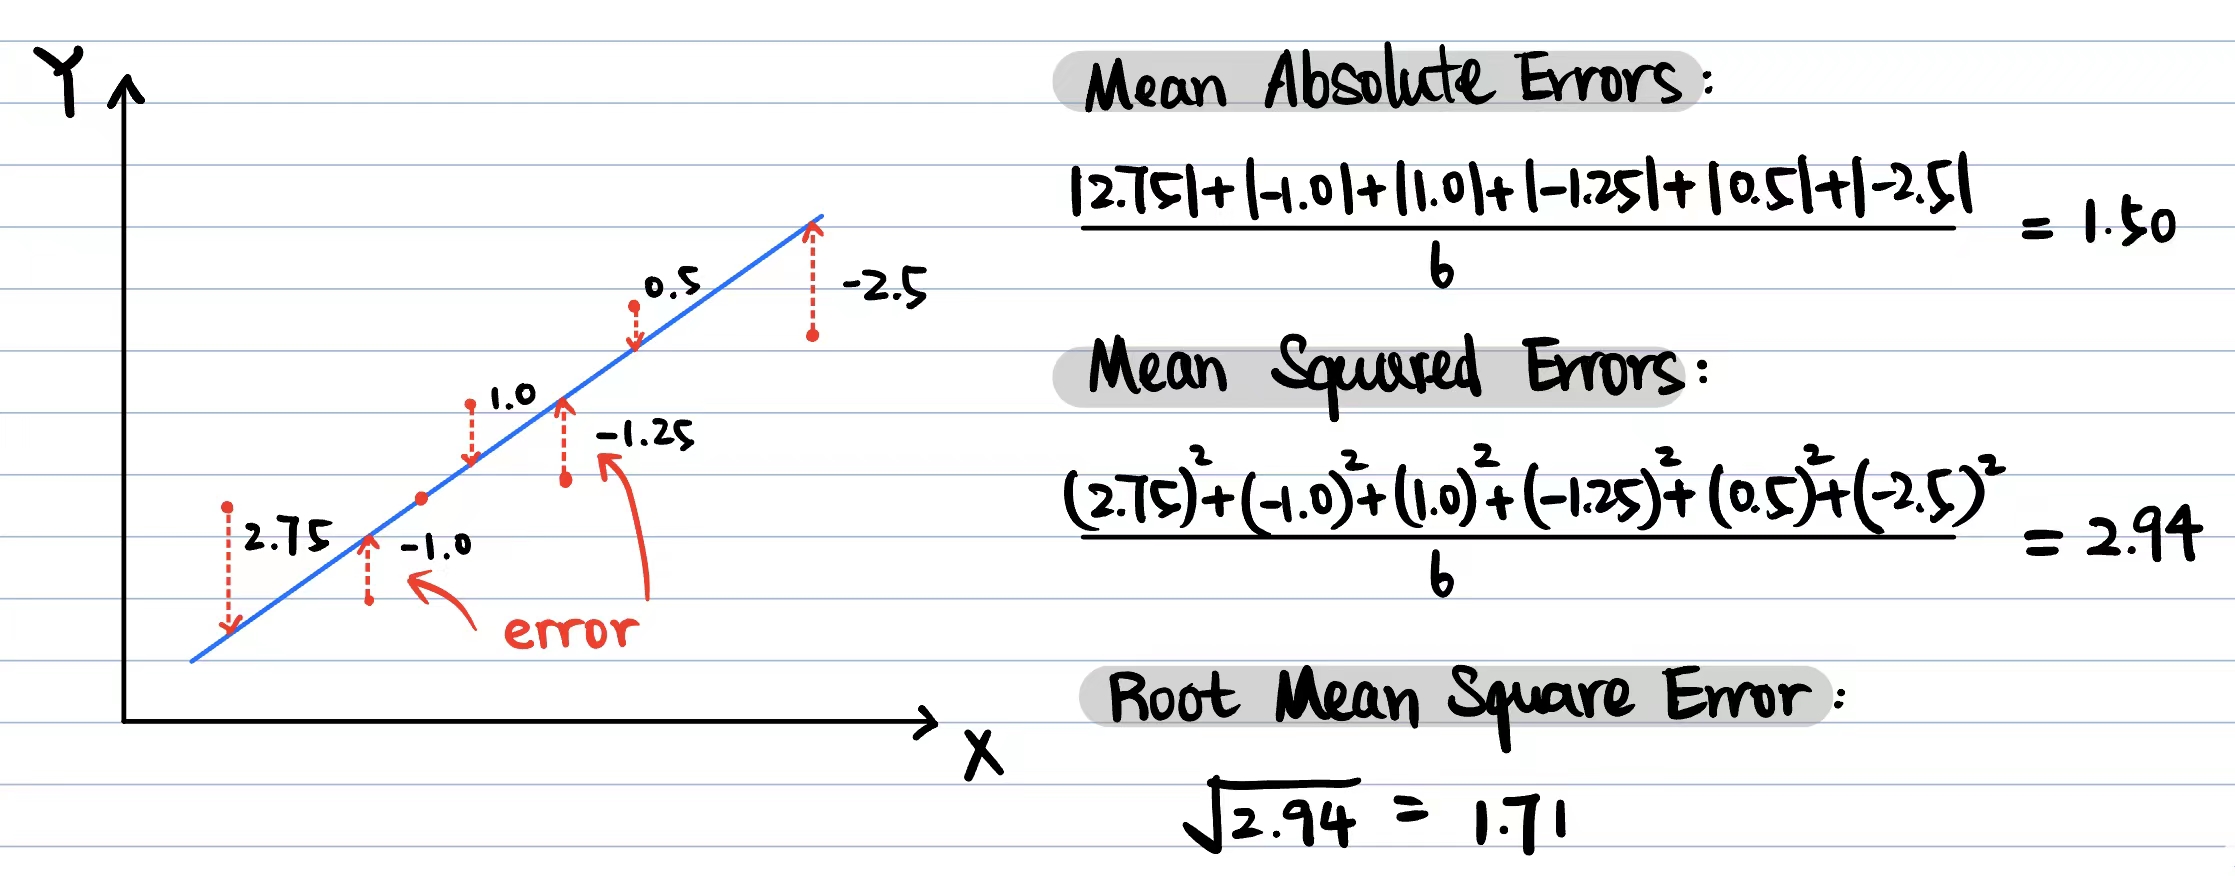 Y
0.5
-2.5
1.0
-1.25
2.75
-1.0
error
X
Mean Absolute Errors:
|2.75|+|-1.0|+|1.0|+|-1.25|+|0.5|+|-2.5|
= 1.50
6
Mean Squared Errors:
(2.75)²+(-1.0)²+(1.0)²+(-1.25)²+(0.5)²+(-2.5)²
= 2.94
6
Root Mean Square Error:
√2.94 = 1.71